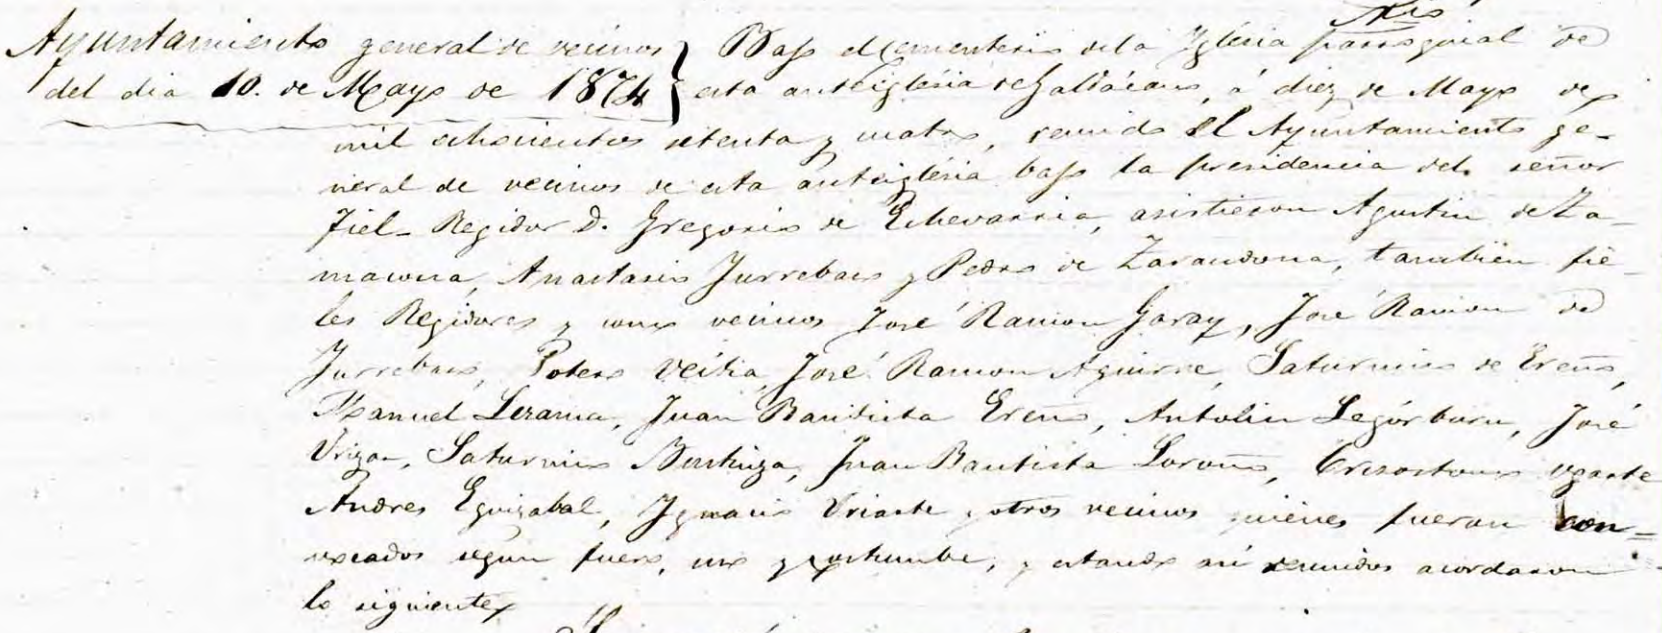 Ayuntamiento general de vecinos
del dia 10. de Mayo de 1874
Bajo el Cementerio de la Yglésia parroquial de
esta anteiglésia de Galdácano, á diez de Mayo de
mil ochocientos setenta y cuatro, reunido el Ayuntamiento ge-
neral de vecinos de esta anteiglésia bajo la presidencia del señor
Fiel Regidor D. Gregorio de Echevarria, asistieron Agustin de Za-
macona, Anastasio Jurrebaso y Pedro de Zarandona, tambien fie-
les Regidores y como vecinos José Ramon Garay, José Ramon de
Jurrebaso, Véitia, José Ramon Aguirre, Saturnino de Ereño,
Manuel Lezama, Juan Bautista Ereño, Antolin Legórburu, José
Saturnino Juan Bautista Loroño, Crisostomo Ugarte
Andres Eguizabal, Ygnacio Uriarte y otros vecinos quiénes fueron con-
vocados segun fuero, uso y costumbre, y estando así reunidos acordaron
lo siguiente